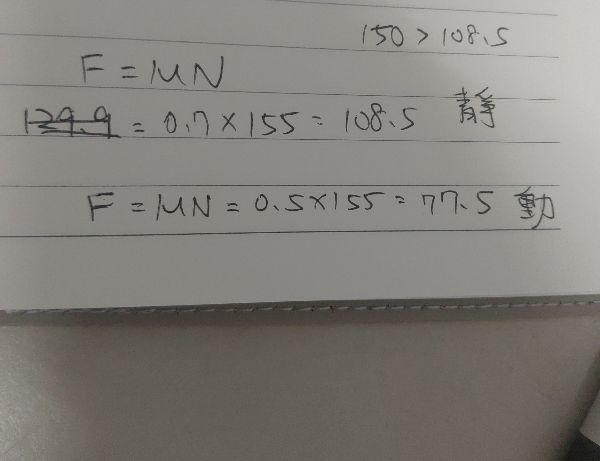 150 > 108.5
F = μN
129.9 = 0.7 × 155 = 108.5 靜
F = μN = 0.5 × 155 = 77.5 動